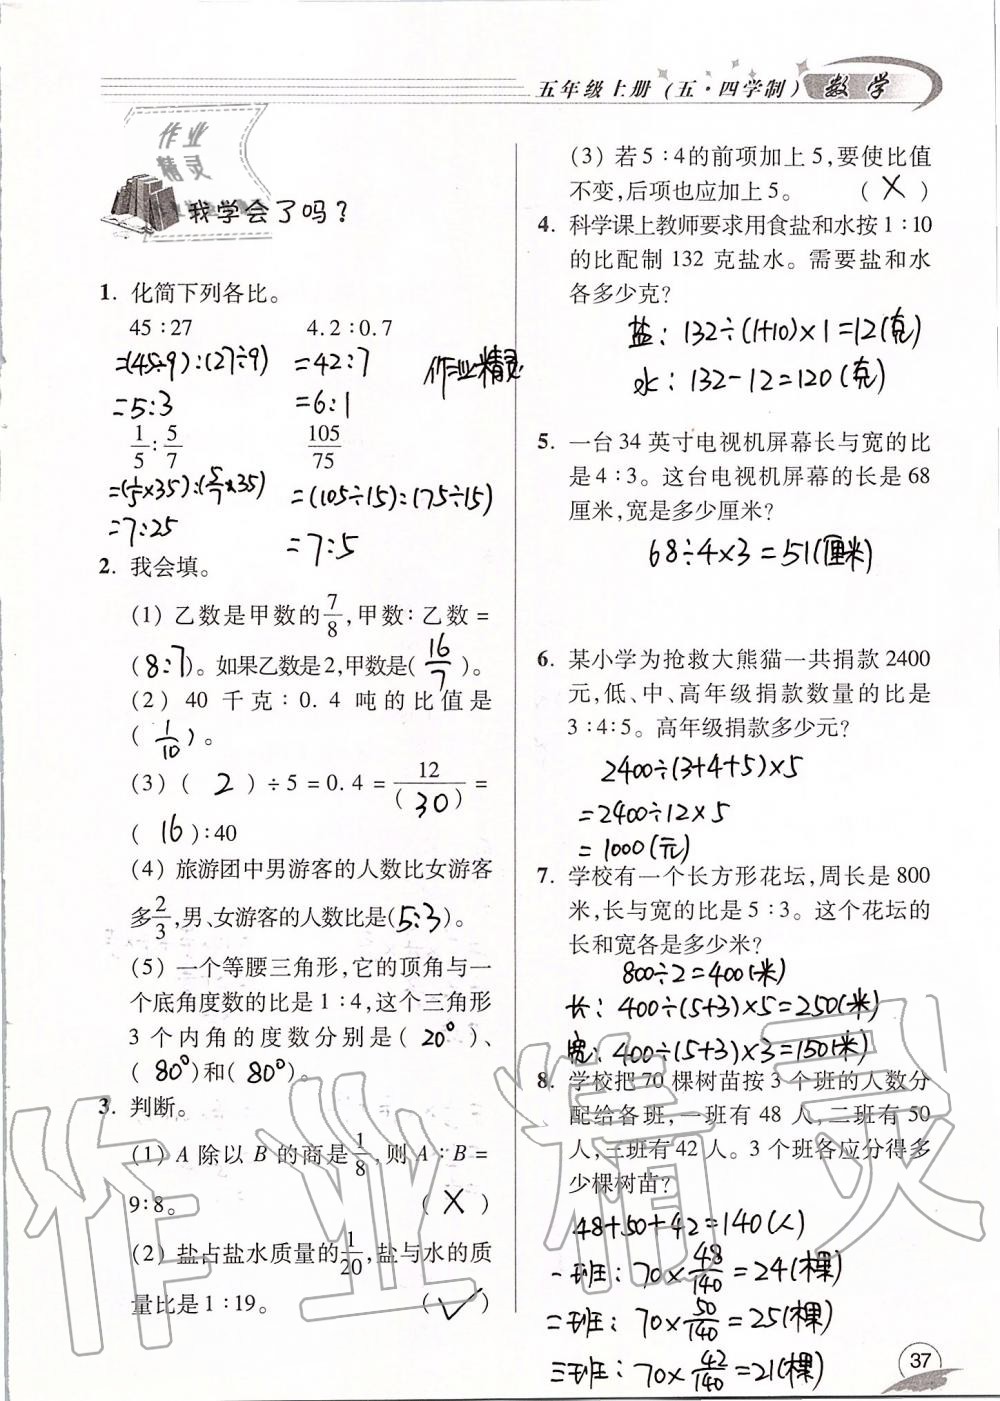 五年级上册(五·四学制) 数学
作业
精灵
我学会了吗?
1. 化简下列各比。
45∶27 4.2∶0.7
=(45÷9):(27÷9) =42:7
=5:3 =6:1
作业精灵
1/5∶5/7 105/75
=(1/5×35):(5/7×35) =(105÷15):(75÷15)
=7:25 =7:5
2. 我会填。
(1) 乙数是甲数的7/8,甲数∶乙数=
(8:7)。如果乙数是2,甲数是(16/7)。
(2) 40 千克∶0.4 吨的比值是
(1/10)。
(3) (2)÷5=0.4=12/(30)=
(16)∶40
(4) 旅游团中男游客的人数比女游客
多2/3,男、女游客的人数比是(5:3)。
(5) 一个等腰三角形,它的顶角与一
个底角度数的比是1∶4,这个三角形
3个内角的度数分别是(20°)、
(80°)和(80°)。
3. 判断。
(1) A除以B的商是1/8,则A∶B=
9∶8。 (×)
(2) 盐占盐水质量的1/20,盐与水的质
量比是1∶19。 (✓)
(3) 若5∶4的前项加上5,要使比值
不变,后项也应加上5。 (×)
4. 科学课上教师要求用食盐和水按1∶10
的比配制132克盐水。需要盐和水
各多少克?
盐: 132÷(1+10)×1=12(克)
水: 132-12=120(克)
5. 一台34英寸电视机屏幕长与宽的比
是4∶3。这台电视机屏幕的长是68
厘米,宽是多少厘米?
68÷4×3=51(厘米)
6. 某小学为抢救大熊猫一共捐款2400
元,低、中、高年级捐款数量的比是
3∶4∶5。高年级捐款多少元?
2400÷(3+4+5)×5
=2400÷12×5
=1000(元)
7. 学校有一个长方形花坛,周长是800
米,长与宽的比是5∶3。这个花坛的
长和宽各是多少米?
800÷2=400(米)
长: 400÷(5+3)×5=250(米)
宽: 400÷(5+3)×3=150(米)
8. 学校把70棵树苗按3个班的人数分
配给各班,一班有48人,二班有50
人,三班有42人。3个班各应分得多
少棵树苗?
48+50+42=140(人)
一班: 70×48/140=24(棵)
二班: 70×50/140=25(棵)
三班: 70×42/140=21(棵)
作业精灵
37